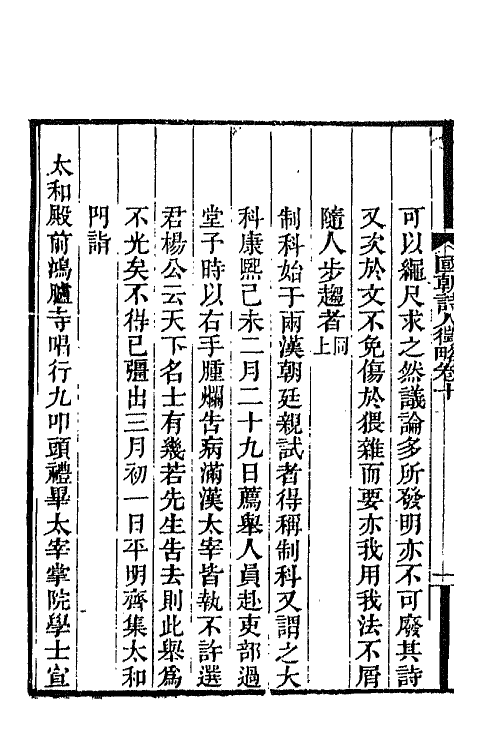 國朝詩人徵略卷十
可以繩尺求之然議論多所發明亦不可廢其詩
又次於文不免傷於猥雜而要亦我用我法不屑
隨人步趨者同上
制科始于兩漢朝廷親試者得稱制科又謂之大
科康熙己未二月二十九日薦舉人員赴吏部過
堂子時以右手腫爛告病滿漢太宰皆執不許選
君楊公云天下名士有幾若先生告去則此舉爲
不光矣不得已彊出三月初一日平明齊集太和
門詣
太和殿前鴻臚寺唱行九叩頭禮畢太宰掌院學士宣